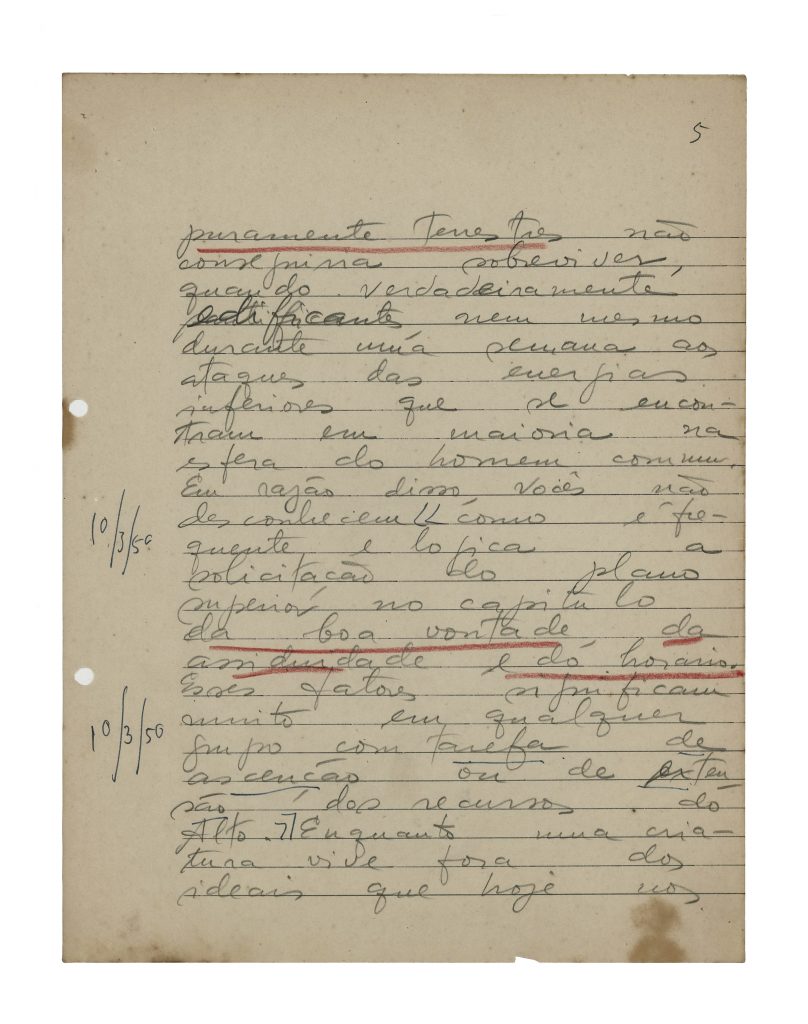 5
puramente terrestres não
conseguiria sobreviver,
quando verdadeiramente
edificantes nem mesmo
durante uma semana aos
ataques das energias
inferiores que se encon-
tram em maioria na
esfera do homem commum.
Em razão disso vocês não
desconhecem como é fre-
quente e logica a
solicitacão do plano
superior no capitulo
da boa vontade, da
assiduidade e do horario.
Esses fatores significam
muito em qualquer
grupo com tarefa de
ascenção ou de exten
são dos recursos do
Alto. Enquanto uma cria-
tura vive fora dos
ideais que hoje nos
10/3/50
10/3/50